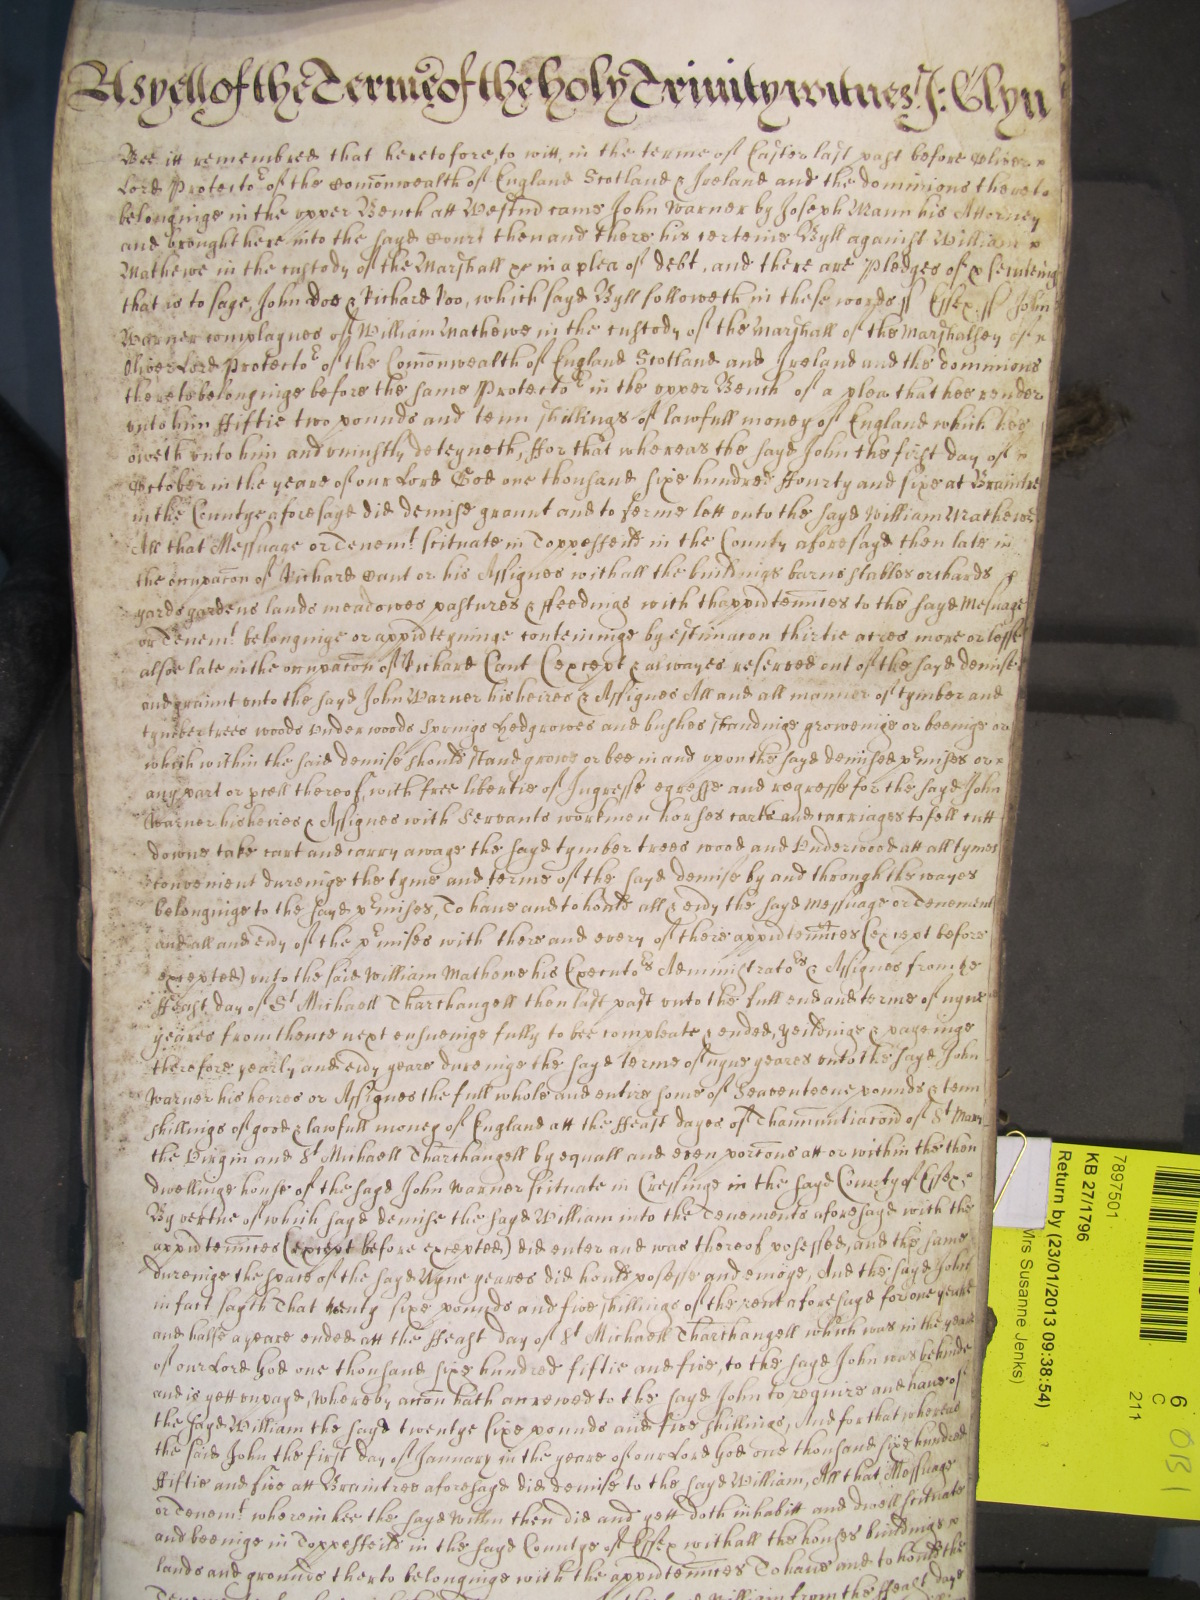 As yett of the Terme of the Holy Trinity witnes J: Glyn
Bee itt remembred that heretofore, to witt, in the terme of Easter last past before Oliver
Lord Protector of the Comonwealth of England Scotland & Ireland and the dominions thereto
belonginge in the upper Bench att Westmr came John Warner by Joseph Mann his Attorney
and brought here into the sayd Court then and there his certeine Byll against William
Mathewe in the custody of the Marshall &c in a plea of debt, and there are Pledges of
that is to saye, John Doe & Richard Roo, which sayd Byll followeth in these words ss Essex ss John
Warner complaynes of William Mathewe in the custody of the Marshall of the Marshalsey of
Oliver Lord Protector of the Comonwealth of England Scotland and Ireland and the dominions
thereto belonginge before the same Protector in the upper Bench of a plea that hee render
unto him ffiftie two pounds and tenn shillings of lawfull money of England which hee
oweth unto him and uniustly deteyneth, ffor that whereas the sayd John the first day of
October in the yeare of our Lord God one thousand sixe hundred ffourty and sixe at Braintre
in the Countye aforesayd did demise graunt and to ferme lett unto the sayd William Mathewe
All that Messuage or Tenemt scituate in Toppesfeild in the County aforesayd then late in
the occupacon of Richard Cant or his Assignes with all the buildings barns stables orchards
yards gardens lands meadowes pastures & ffeedings with thappurtennces to the sayd Mesuage
or Tenemt belonginge or apperteyninge conteininge by estimacon thirtie acres more or lesse
alsoe late in the occupacon of Richard Cant (except & alwayes reserved out of the sayd demise
and graunt unto the sayd John Warner his heires & Assignes All and all manner of tymber and
tymber trees woods underwoods springs hedgrowes and bushes standinge groweinge or beeinge or
which within the said demise should stand growe or bee in and upon the sayd demised prmises or
any part or pcell thereof, with free libertie of Ingresse egresse and regresse for the sayd John
Warner his heires & Assignes with Servants workmen horses carts and carriages to fell cutt
downe take cart and carry awaye the sayd tymber trees wood and Underwood att all tymes
convenient dureinge the tyme and terme of the sayd demise by and through the wayes
belonginge to the sayd prmises, To have and to hould all & evry the sayd Messuage or Tenement
and all and evry of the prmises with there and every of there appurtennces (except before
excepted) unto the said William Mathewe his Executors Administrators & Assignes from the
ffeast day of St Michaell Tharchangell then last past unto the full end and terme of nyne
yeares from thence next ensueinge fully to bee compleate & ended, yeildinge & payeinge
therefore yearly and evry yeare dureinge the sayd terme of nyne yeares unto the sayd John
Warner his heires or Assignes the full whole and entire some of Seaventeene pounds & tenn
shillings of good & lawfull money of England att the ffeast dayes of Thannunciacon of St Mary
the Virgin and St Michaell Tharchangell by equall and even porcons att or within the then
dwellinge house of the sayd John Warner scituate in Cressinge in the sayd County of Essex
By vertue of which sayd demise the sayd William into the Tenements aforesayd with the
appurtennces (except before excepted) did enter and was thereof possessed, and the same
dureinge the space of the sayd Nyne yeares did hould possesse and enioye, And the sayd John
in fact sayth That twenty sixe pounds and five shillings of the rent aforesayd for one yeare
and halfe a yeare ended att the ffeast day of St Michaell Tharchangell which was in the yeare
of our Lord God one thousand sixe hundred fiftie and five, to the sayd John was behinde
and is yett unpayd, Whereby accon hath accrewed to the sayd John to require and have of
the sayd William the sayd twentye sixe pounds and five shillings, And for that whereas
the said John the first day of January in the yeare of our Lord God one thousand sixe hundred
ffiftie and five att Braintree aforesayd did demise to the sayd William, All that Messuage
or Tenemt wherein hee the sayd Willm then did and yett doth inhabitt and dwell scituate
and beeinge in Toppesfeild in the sayd Countye of Essex with all the houses buildings
lands and grounds therto belonginge with the appurtennces To have and to hould the
William from the ffeast daye
7897501
KB 27/1796
Return by (23/01/2013 09:38:54)
Mrs Susanne Jenks)
6
C
211